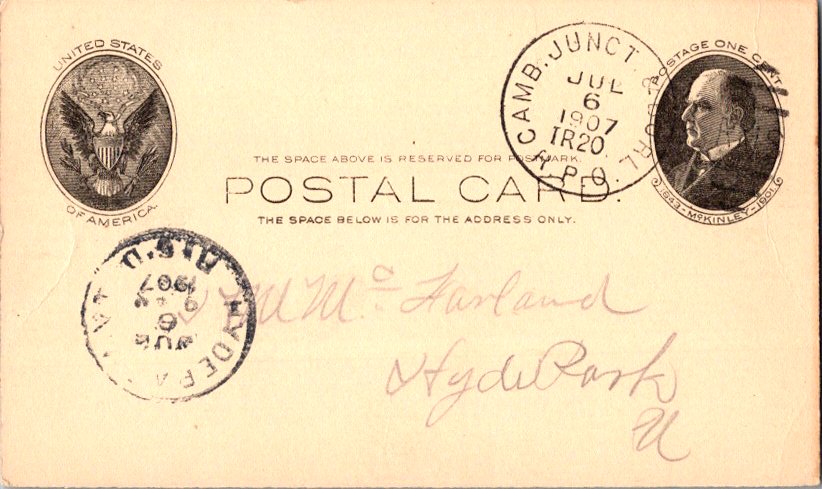 UNITED STATES
OF AMERICA.
CAMB. JUNCT. & BURL.
JUL
6
1907
TR20
R.P.O.
POSTAGE ONE CENT
1843-McKINLEY-1901
THE SPACE ABOVE IS RESERVED FOR POSTMARK.
POSTAL CARD.
THE SPACE BELOW IS FOR THE ADDRESS ONLY.
HYDE PARK, VT.
JUL
6
1907
REC'D.
M Mc Farland
Hyde Park